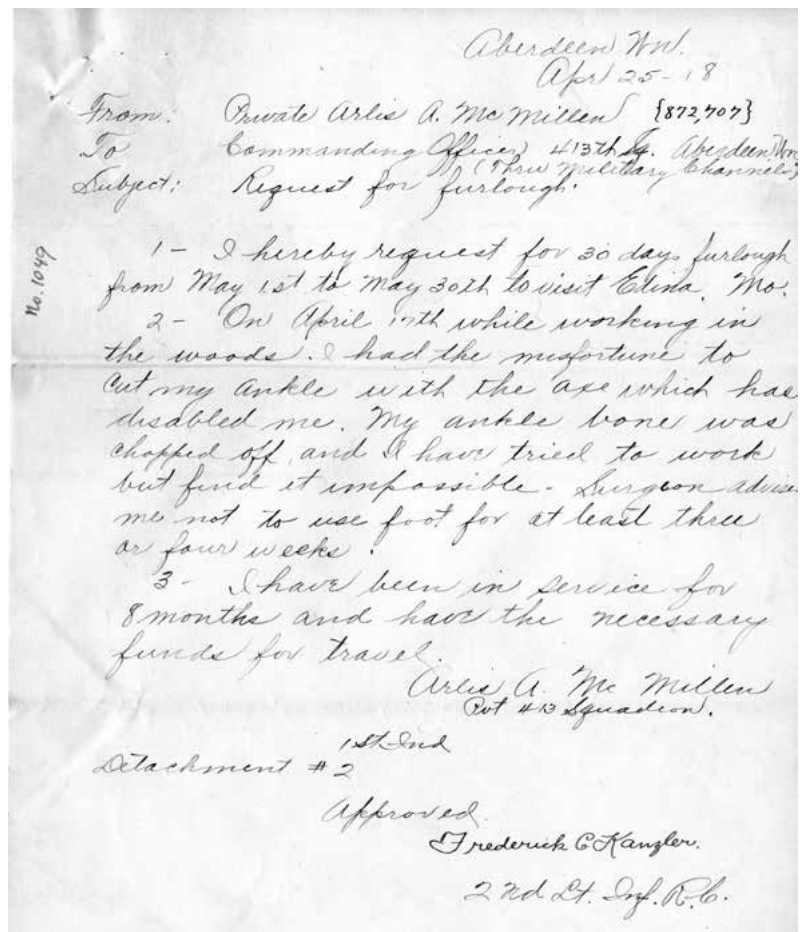 Aberdeen Wn.
Apr 25-18
From: Private Arlis A. McMillen {872,707}
To Commanding Officer, 413th Sq. Aberdeen Wn
(Thru Military Channels)
Subject: Request for furlough.
No. 1049
1- I hereby request for 30 days furlough
from May 1st to May 30th to visit Edina, Mo.
2- On April 17th while working in
the woods. I had the misfortune to
cut my ankle with the axe which has
disabled me. My ankle bone was
chopped off, and I have tried to work
but find it impossible - Surgeon advise
me not to use foot for at least three
or four weeks.
3- I have been in service for
8 months and have the necessary
funds for travel.
Arlis A. Mc Millen
Pvt 413 Squadron.
1st Ind
Detachment #2
Approved.
Frederick C Kanzler.
2nd Lt. Inf. R.C.